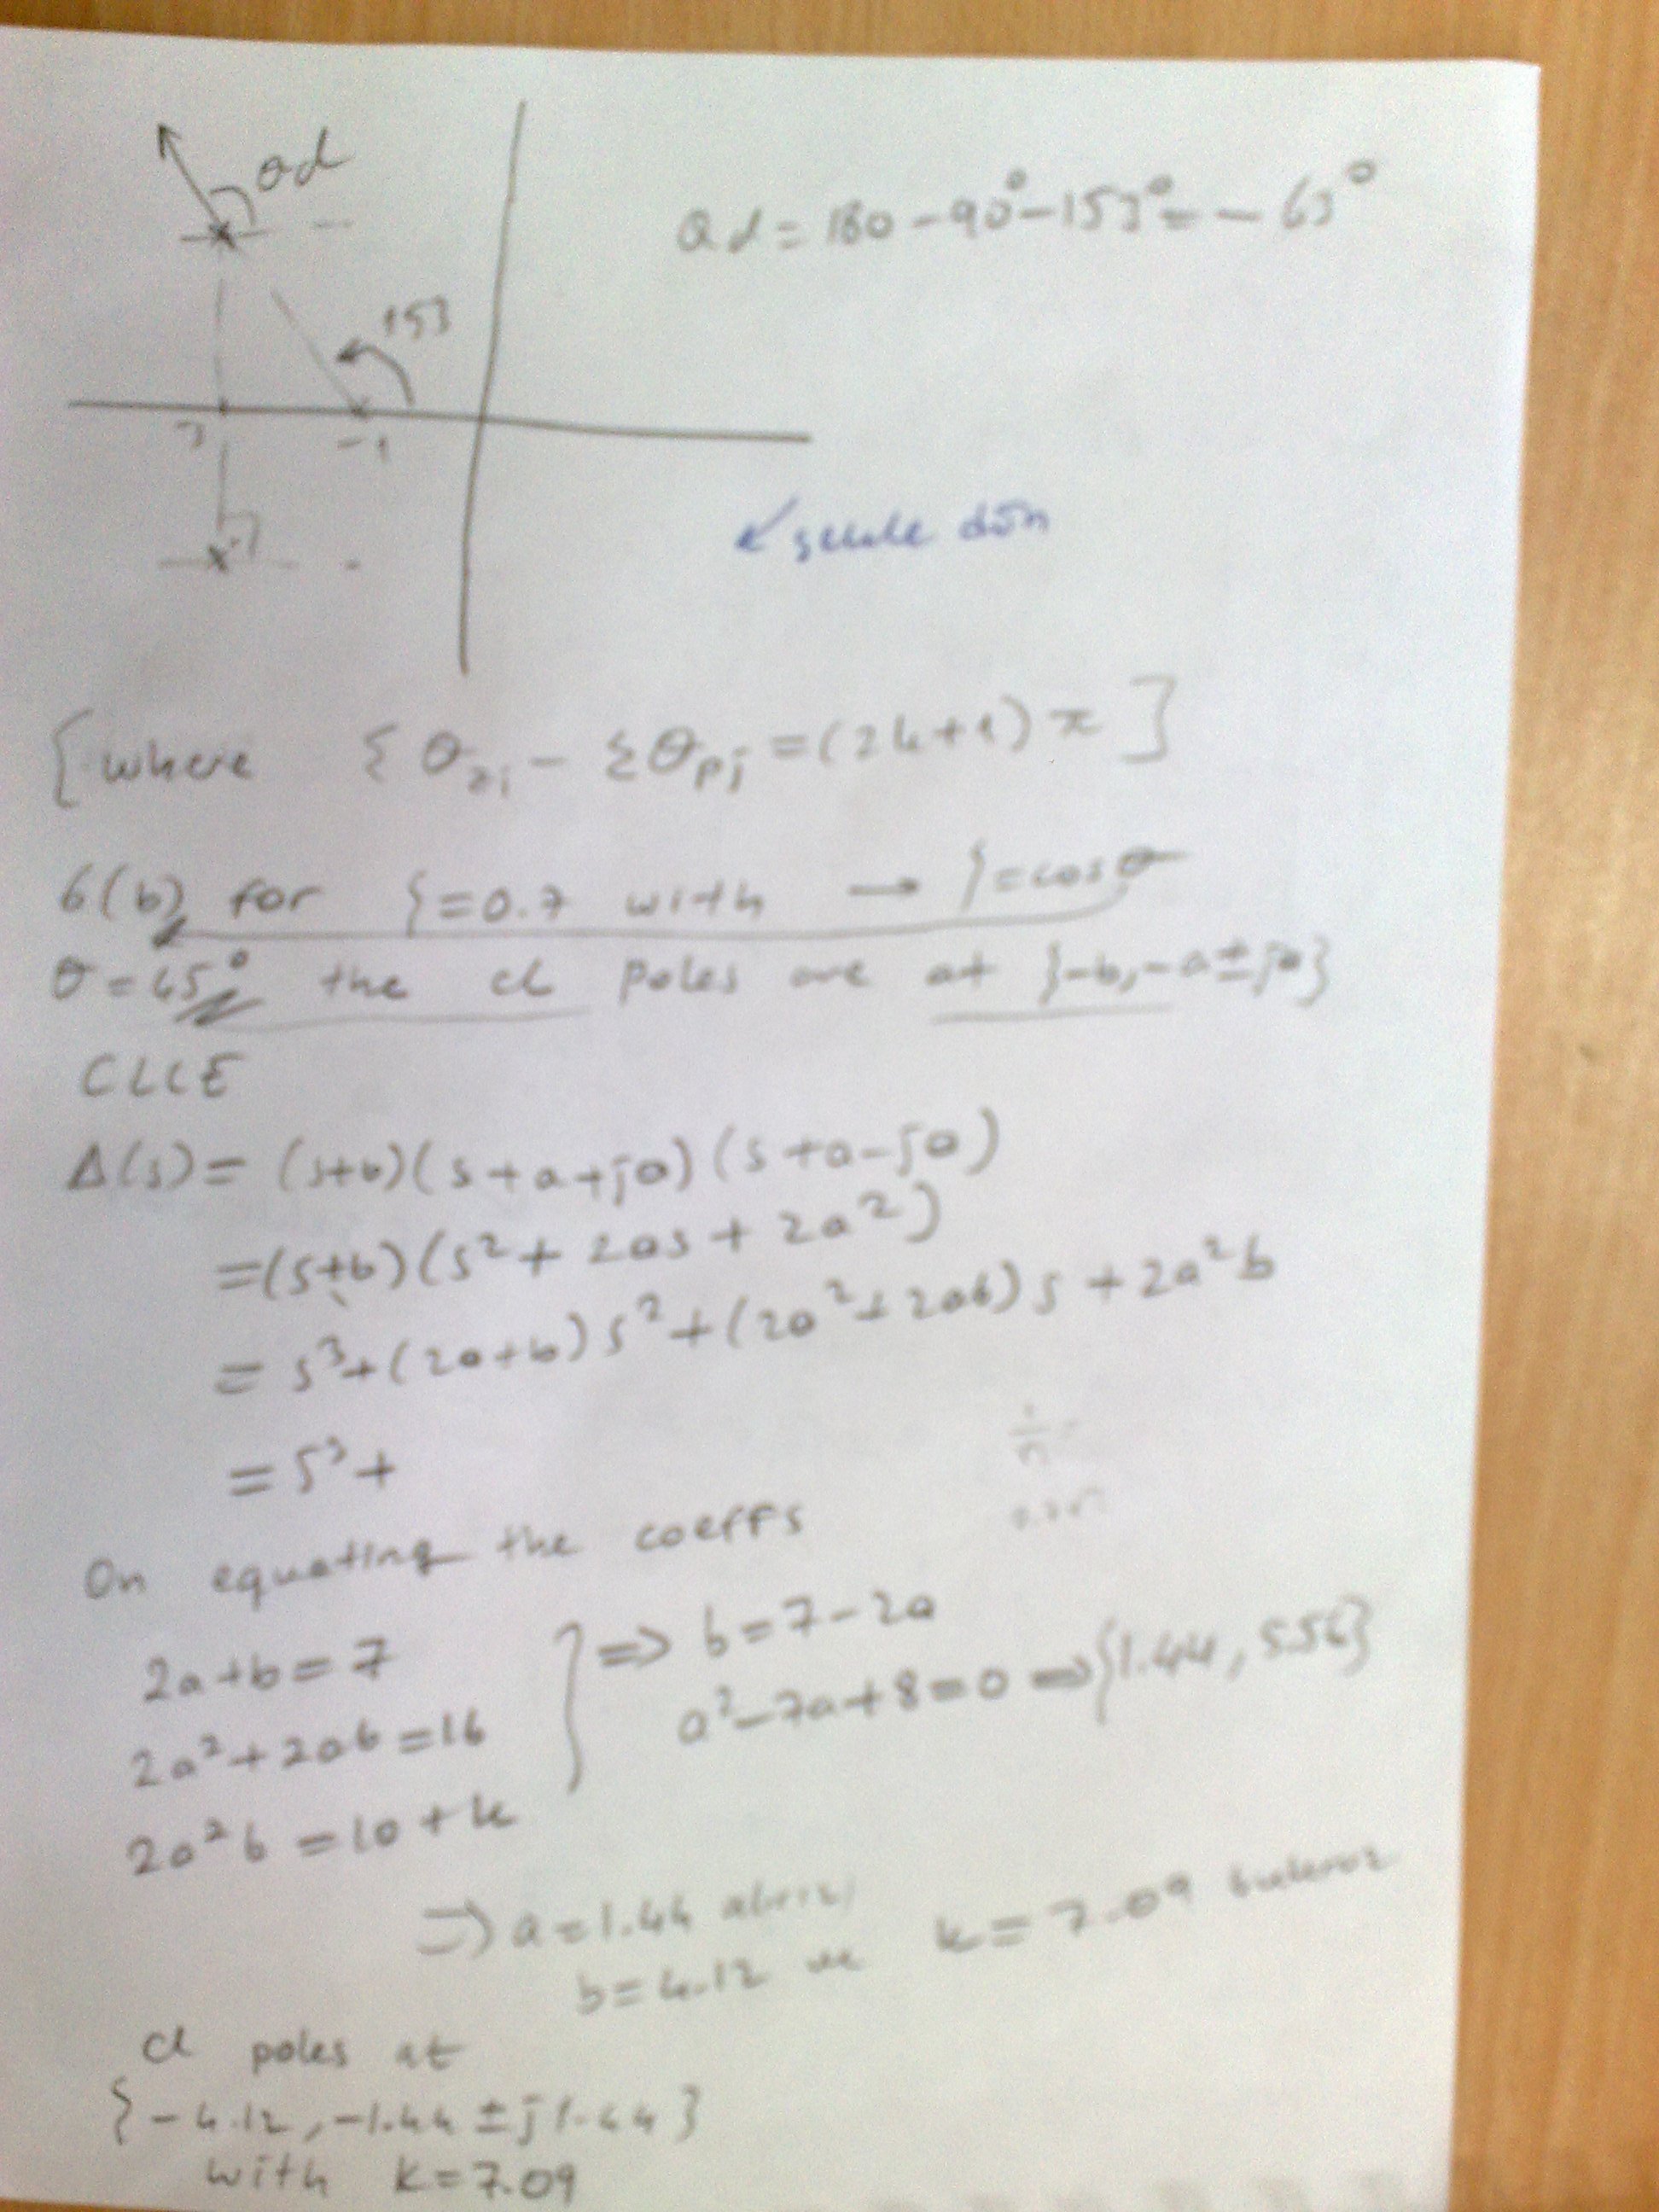 θd
θd = 180 - 90° - 153° = - 63°
153
-1
şekle dön
[where Σθzi - Σθpj = (2k+1)π]
6(b) for ζ = 0.7 with → ζ = cosθ
θ = 45° the cl poles are at {-b, -a±ja}
CLCE
Δ(s) = (s+b)(s+a+ja)(s+a-ja)
= (s+b)(s² + 2as + 2a²)
= s³ + (2a+b)s² + (2a² + 2ab)s + 2a²b
= s³ +
On equating the coeffs
2a+b = 7
2a² + 2ab = 16
2a²b = 10 + k
} ⇒ b = 7 - 2a
a² - 7a + 8 = 0 ⇒ {1.44, 5.56}
⇒ a = 1.44 alırız
b = 4.12 ve k = 7.09 buluruz
cl poles at
{-4.12, -1.44 ± j1.44}
with k = 7.09